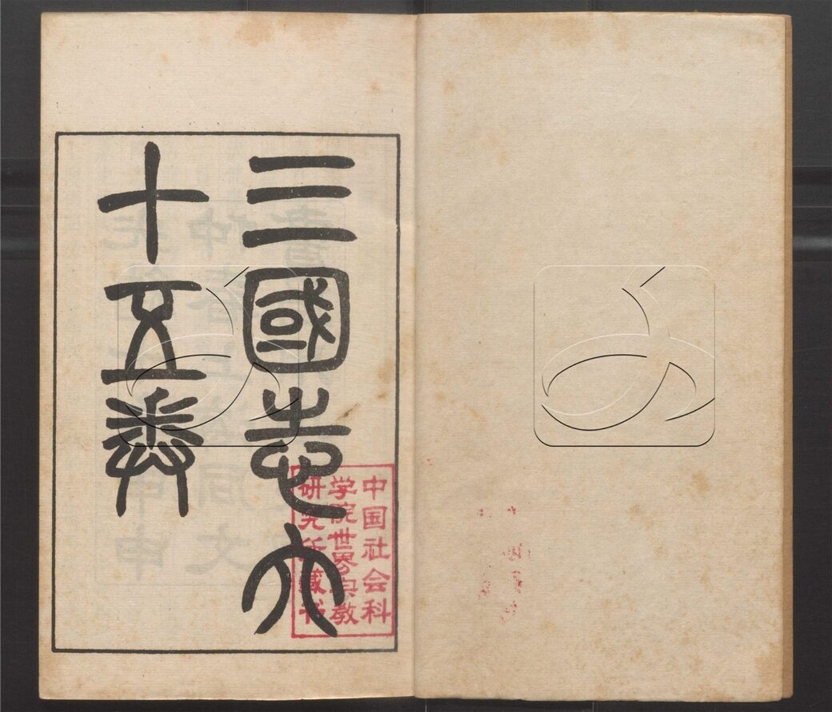 三國志六
十五卷
中国社会科
学院世界宗教
研究所藏书